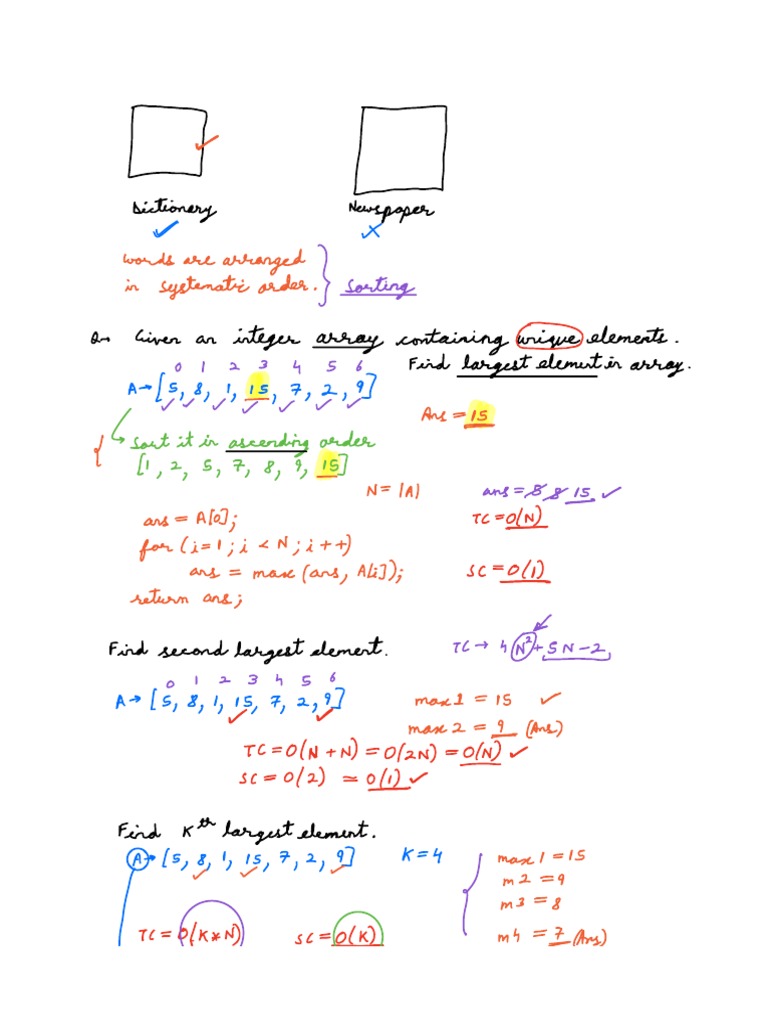 Dictionary
Newspaper
words are arranged
in systematic order.
Sorting
Q→ Given an integer array containing unique elements.
Find largest element in array.
0 1 2 3 4 5 6
A→[5, 8, 1, 15, 7, 2, 9]
Ans = 15
Sort it in ascending order
[1, 2, 5, 7, 8, 9, 15]
N = |A|
ans = 5 8 15
ans = A[0];
TC = O(N)
for (i=1; i < N; i++)
ans = max(ans, A[i]);
SC = O(1)
return ans;
Find second largest element.
TC → 4N²+5N-2
0 1 2 3 4 5 6
A→[5, 8, 1, 15, 7, 2, 9]
max1 = 15
max2 = 9 (Ans)
TC = O(N+N) = O(2N) = O(N)
SC = O(2) ≃ O(1)
Find Kth largest element.
A→[5, 8, 1, 15, 7, 2, 9] K=4
max1 = 15
m2 = 9
m3 = 8
m4 = 7 (Ans)
TC = O(K*N) SC = O(K)